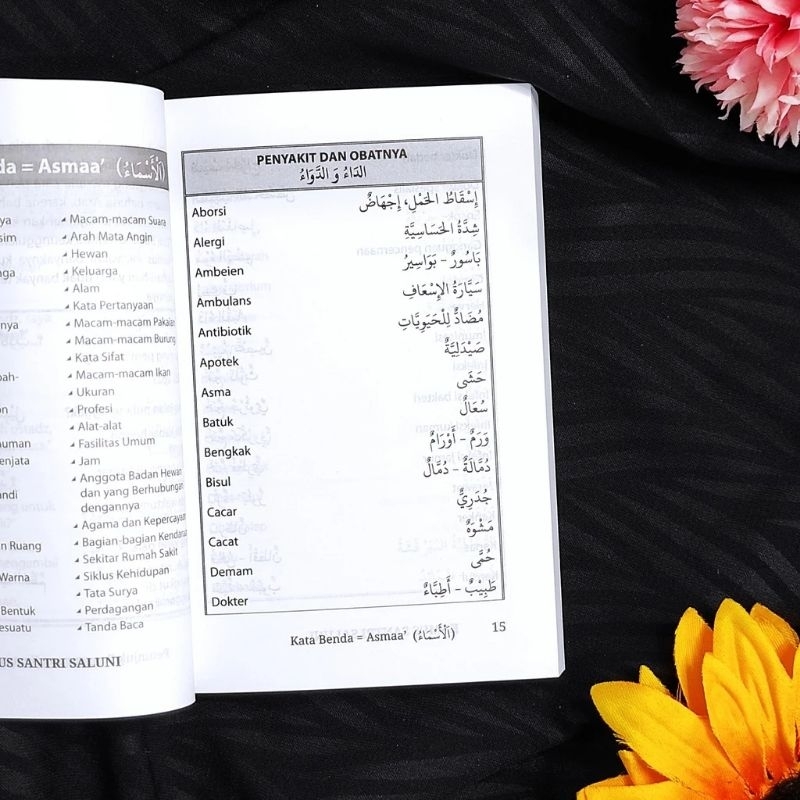 nda = Asmaa’ (اَلْأَسْمَاءُ)
Macam-macam Suara
Arah Mata Angin
Hewan
Keluarga
Alam
Kata Pertanyaan
Macam-macam Pakaian
Macam-macam Burung
Kata Sifat
Macam-macam Ikan
Ukuran
Profesi
Alat-alat
Fasilitas Umum
Jam
Anggota Badan Hewan
dan yang Berhubungan
dengannya
Agama dan Kepercayaan
Bagian-bagian Kendaraan
n Ruang
Sekitar Rumah Sakit
Warna
Siklus Kehidupan
Tata Surya
Bentuk
Perdagangan
Tanda Baca
US SANTRI SALUNI
PENYAKIT DAN OBATNYA
الدَاءُ وَ الدَّوَاءُ
Aborsi إِسْقَاطُ الحَمْلِ، إِجْهَاضٌ
Alergi شِدَّةُ الحَسَاسِيَّةِ
Ambeien بَاسُورٌ – بَوَاسِيرُ
Ambulans سَيَّارَةُ الإِسْعَافِ
Antibiotik مُضَادٌّ لِلْحَيَوِيَّاتِ
Apotek صَيْدَلِيَّةٌ
Asma حَشَى
Batuk سُعَالٌ
Bengkak وَرَمٌ – أَوْرَامٌ
Bisul دُمَّالَةٌ – دُمَّالٌ
Cacar جُدَرِيٌّ
Cacat مَشْوَهٌ
Demam حُمَّى
Dokter طَبِيْبٌ – أَطِبَّاءٌ
Kata Benda = Asmaa’ (اَلْأَسْمَاءُ) 15